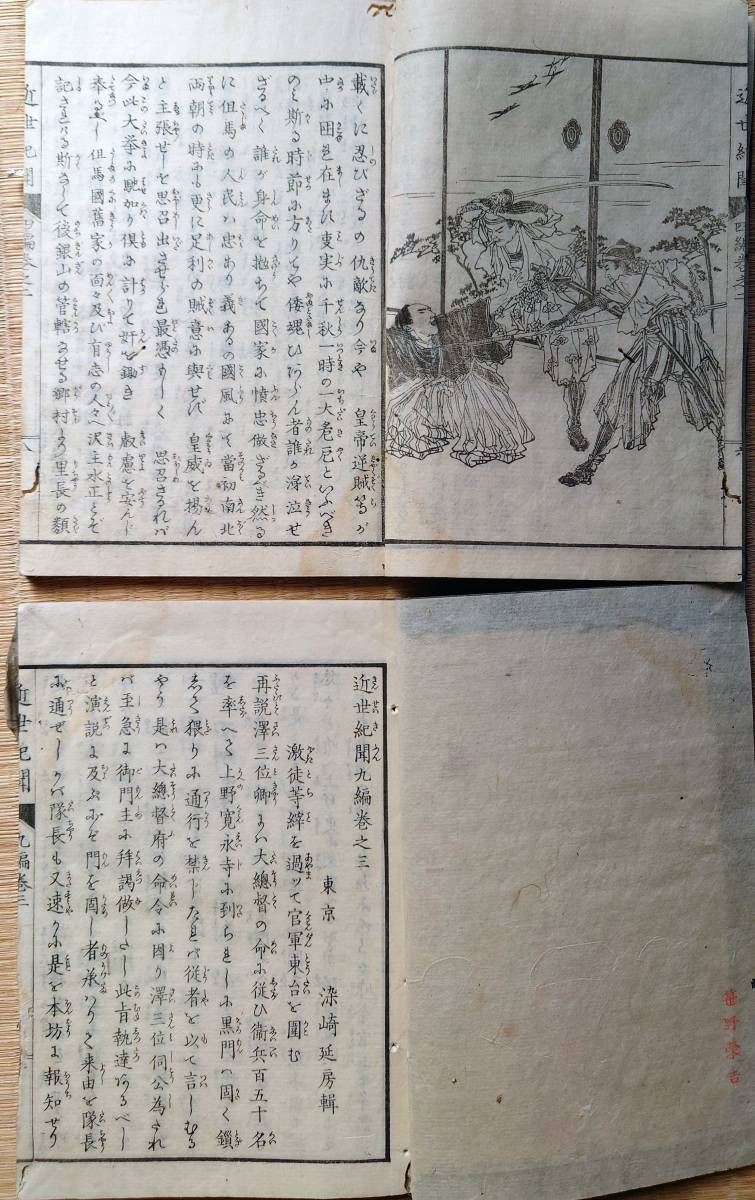 近世紀聞
四編巻之二
載くに忍びざるの仇敵あり今や 皇帝逆賊等が
中に困を在まし実に千秋一時の一大危厄といふべき
のミ斯る時節に方りてや倭縄ひたらん者誰か涕泣せ
ざるべく誰か身命を抛ちて國家に憤忠做ざるべき然る
に但馬の人民ハ忠あり義あるの國風にて當初南北
両朝の時にも更に足利の賊意に與せず 皇威を揚ん
と主張せしを思召出させられ最憑もしく 思召さるれバ
今此大挙に馳加り倶に計りて奸を鋤き 叡慮を安んじ
奉るべし但馬國舊家の面々及び有志の人々へ沢主水正とぞ
記されける斯くて後銀山の管轄なせる郷村なる里長の類
近世紀聞
四編巻之二
近世紀聞九編巻之三
東京 染崎延房輯
激徒等緯を過ツて官軍東台を圍む
再説澤三位卿にハ大總督の命に従ひ衛兵百五十名
を率へて上野寛永寺に到られしに黒門ハ固く鎖
して猥りに通行を禁じたれバ従者を以て言しむる
やう是ハ大總督府の命令に因り澤三位伺公為され
バ至急に御門主に拝謁做したし此旨執達あるべし
と演説に及ぶにぞ門を固し者承ハりて来由を隊長
に通ぜしかバ隊長も又速かに是を本坊に報知せり
近世紀聞
九編巻三